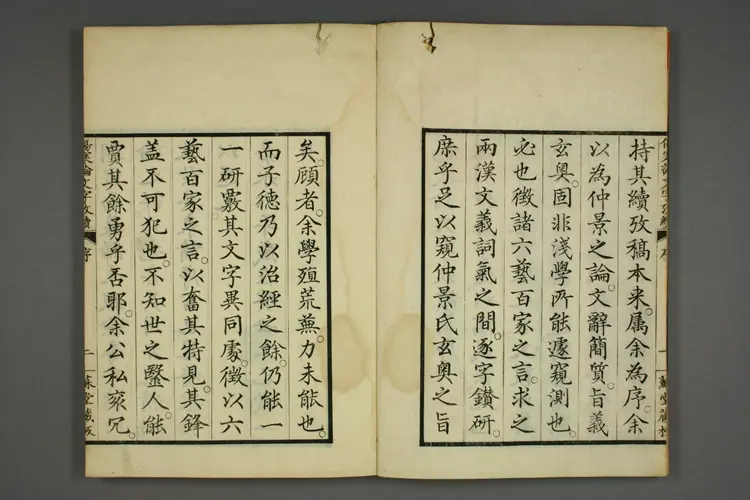 持其續攷稿本来。属余為序。余
以為仲景之論。文辭簡質。旨義
玄奥。固非淺學所能遽窺測也。
必也徵諸六藝百家之言。求之
兩漢文義詞氣之間。逐字鑚研。
庶乎足以窺仲景氏玄奥之旨
矣。顧者。余學殖荒蕪。力未能也。
而子德乃以治經之餘。仍能一
一研覈其文字異同處。徴以六
藝百家之言。以奮其特見。其鋒
盖不可犯也。不知世之毉人。能
賈其餘勇乎否耶。余公私䆮冗。
傷寒論文字攷續
序
二